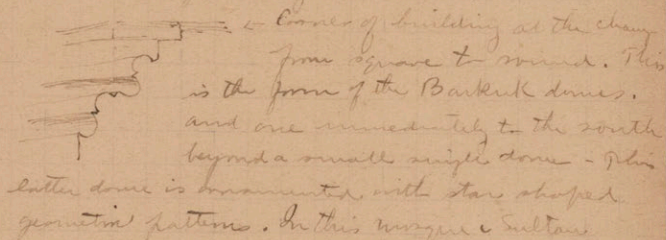 ← Corner of building at the change
from square to round. This
is the form of the Barkuk domes.
and one immediately to the south
beyond a small single dome - This
latter dome is ornamented with star shaped
geometric patterns. In this mosque & Sultan